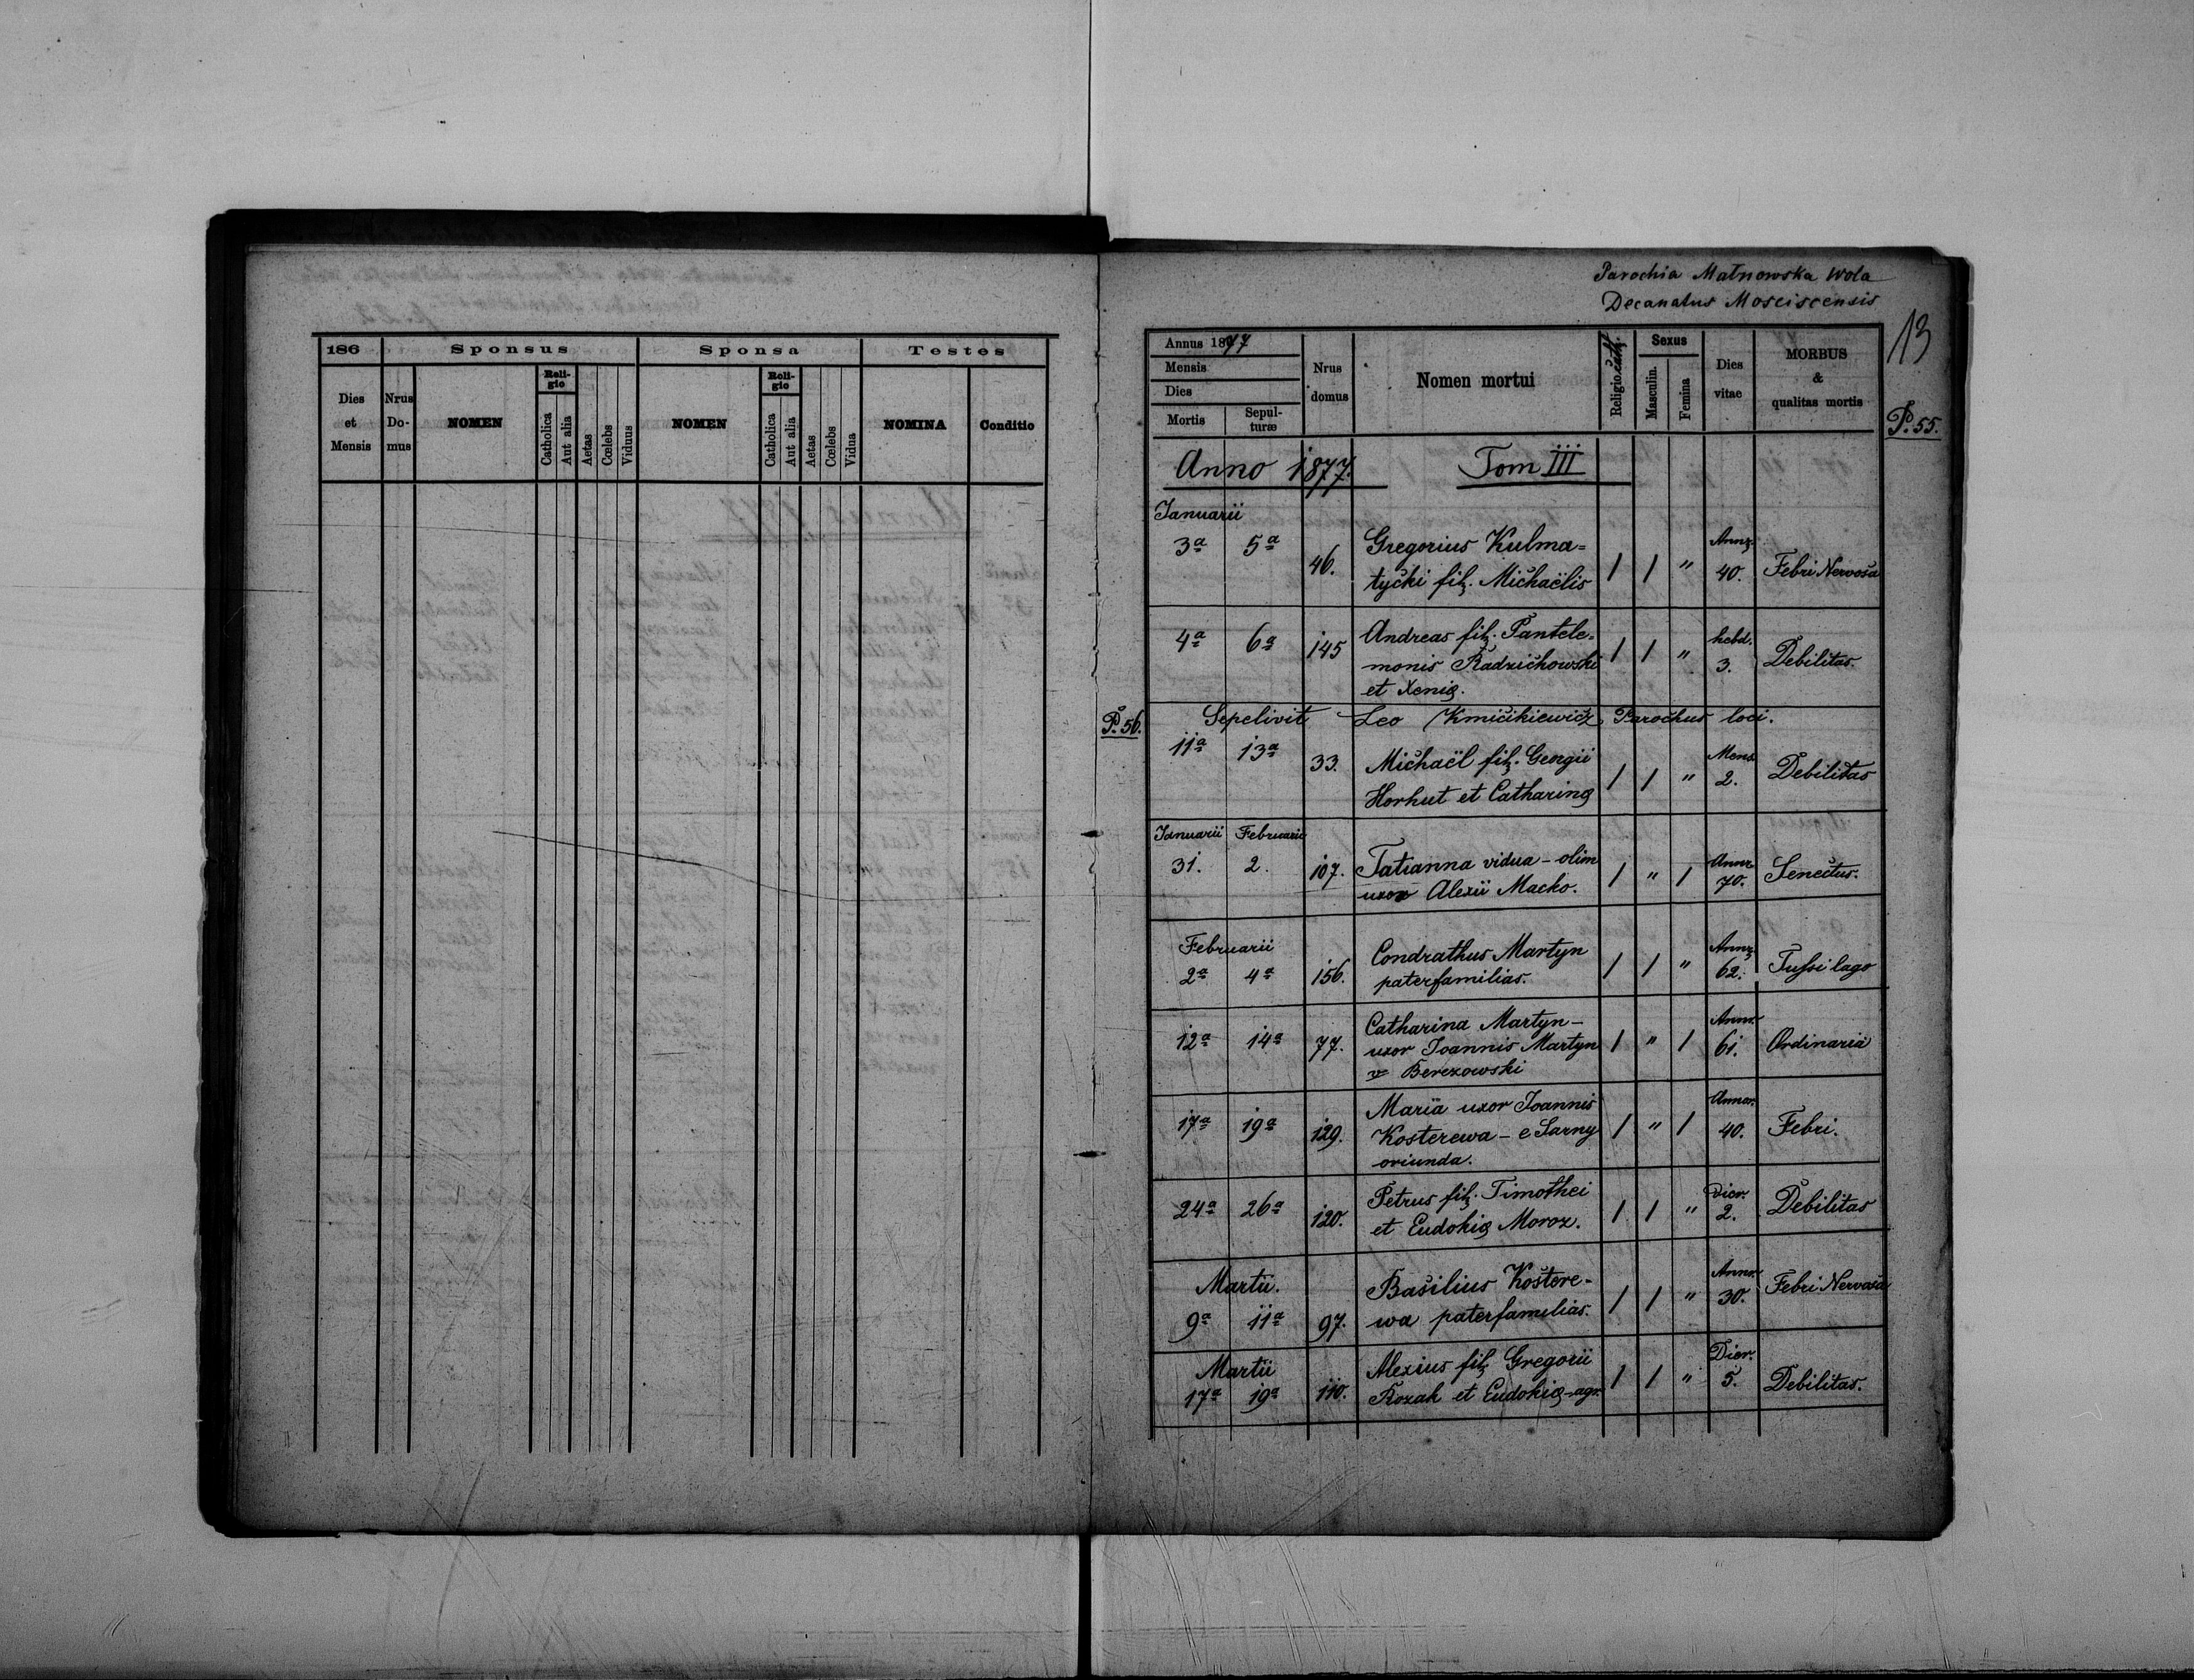 186 Sponsus Sponsa Testes
Dies et Mensis
Nrus Do-mus
NOMEN
Reli-gio
Catholica
Aut alia
Aetas
Cœlebs
Viduus
NOMEN
Reli-gio
Catholica
Aut alia
Aetas
Cœlebs
Vidua
NOMINA
Conditio
Parochia Małnowska Wola
Decanatus Mosciscensis
13
P. 55.
Annus 1877
Mensis
Dies
Mortis
Sepul-turæ
Nrus domus
Nomen mortui
Religio cath.
Sexus
Masculin.
Femina
Dies vitae
MORBUS & qualitas mortis
Anno 1877. Tom III
Januarii
3a 5a 46. Gregorius Kulma=
tycki fil. Michaëlis / / " 40. Febri Nervosa
4a 6a 145 Andreas fil. Pantele=
monis Radzichowski / / " hebd. 3. Debilitas.
et Xeniæ.
P. 56. Sepelivit Leo Kmicikiewicz Parochus loci.
11a 13a 33. Michaël fil. Georgii
Horhut et Catharinæ / / " Mens. 2. Debilitas
Januarii Februarii
31. 2. 107. Tatianna vidua - olim
uxor Alexii Macko. / " / 70. Senectus.
Februarii
2a 4a 156. Condrathus Martyn
paterfamilias. / / " 62. Tussilago
12a 14a 77. Catharina Martyn -
uxor Joannis Martyn / " / 61. Ordinaria
v Berezowski
17a 19a 129. Maria uxor Joannis
Kosterewa - e Sarny / " / Annor. 40. Febri.
oriunda.
24a 26a 120. Petrus fil. Timothei
et Eudokiæ Moroz. / / " Dier. 2. Debilitas
Martii.
9a 11a 97. Basilius Kostere-
wa paterfamilias. / / " Anno. 30. Febri Nervosa
Martii
17a 19a 110. Alexius fil. Gregorii
Kozak et Eudokiæ - agr. / / " Dier. 5. Debilitas.